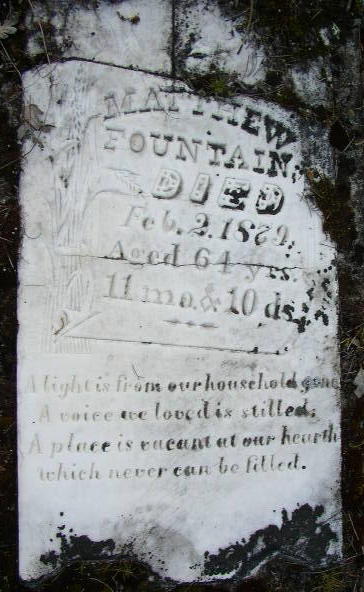 MATTHEW
FOUNTAIN,
DIED
Feb. 2, 1879,
Aged 64 yrs.
11 mo. & 10 ds.
A light is from our household gone
A voice we loved is stilled;
A place is vacant at our hearth
which never can be filled.